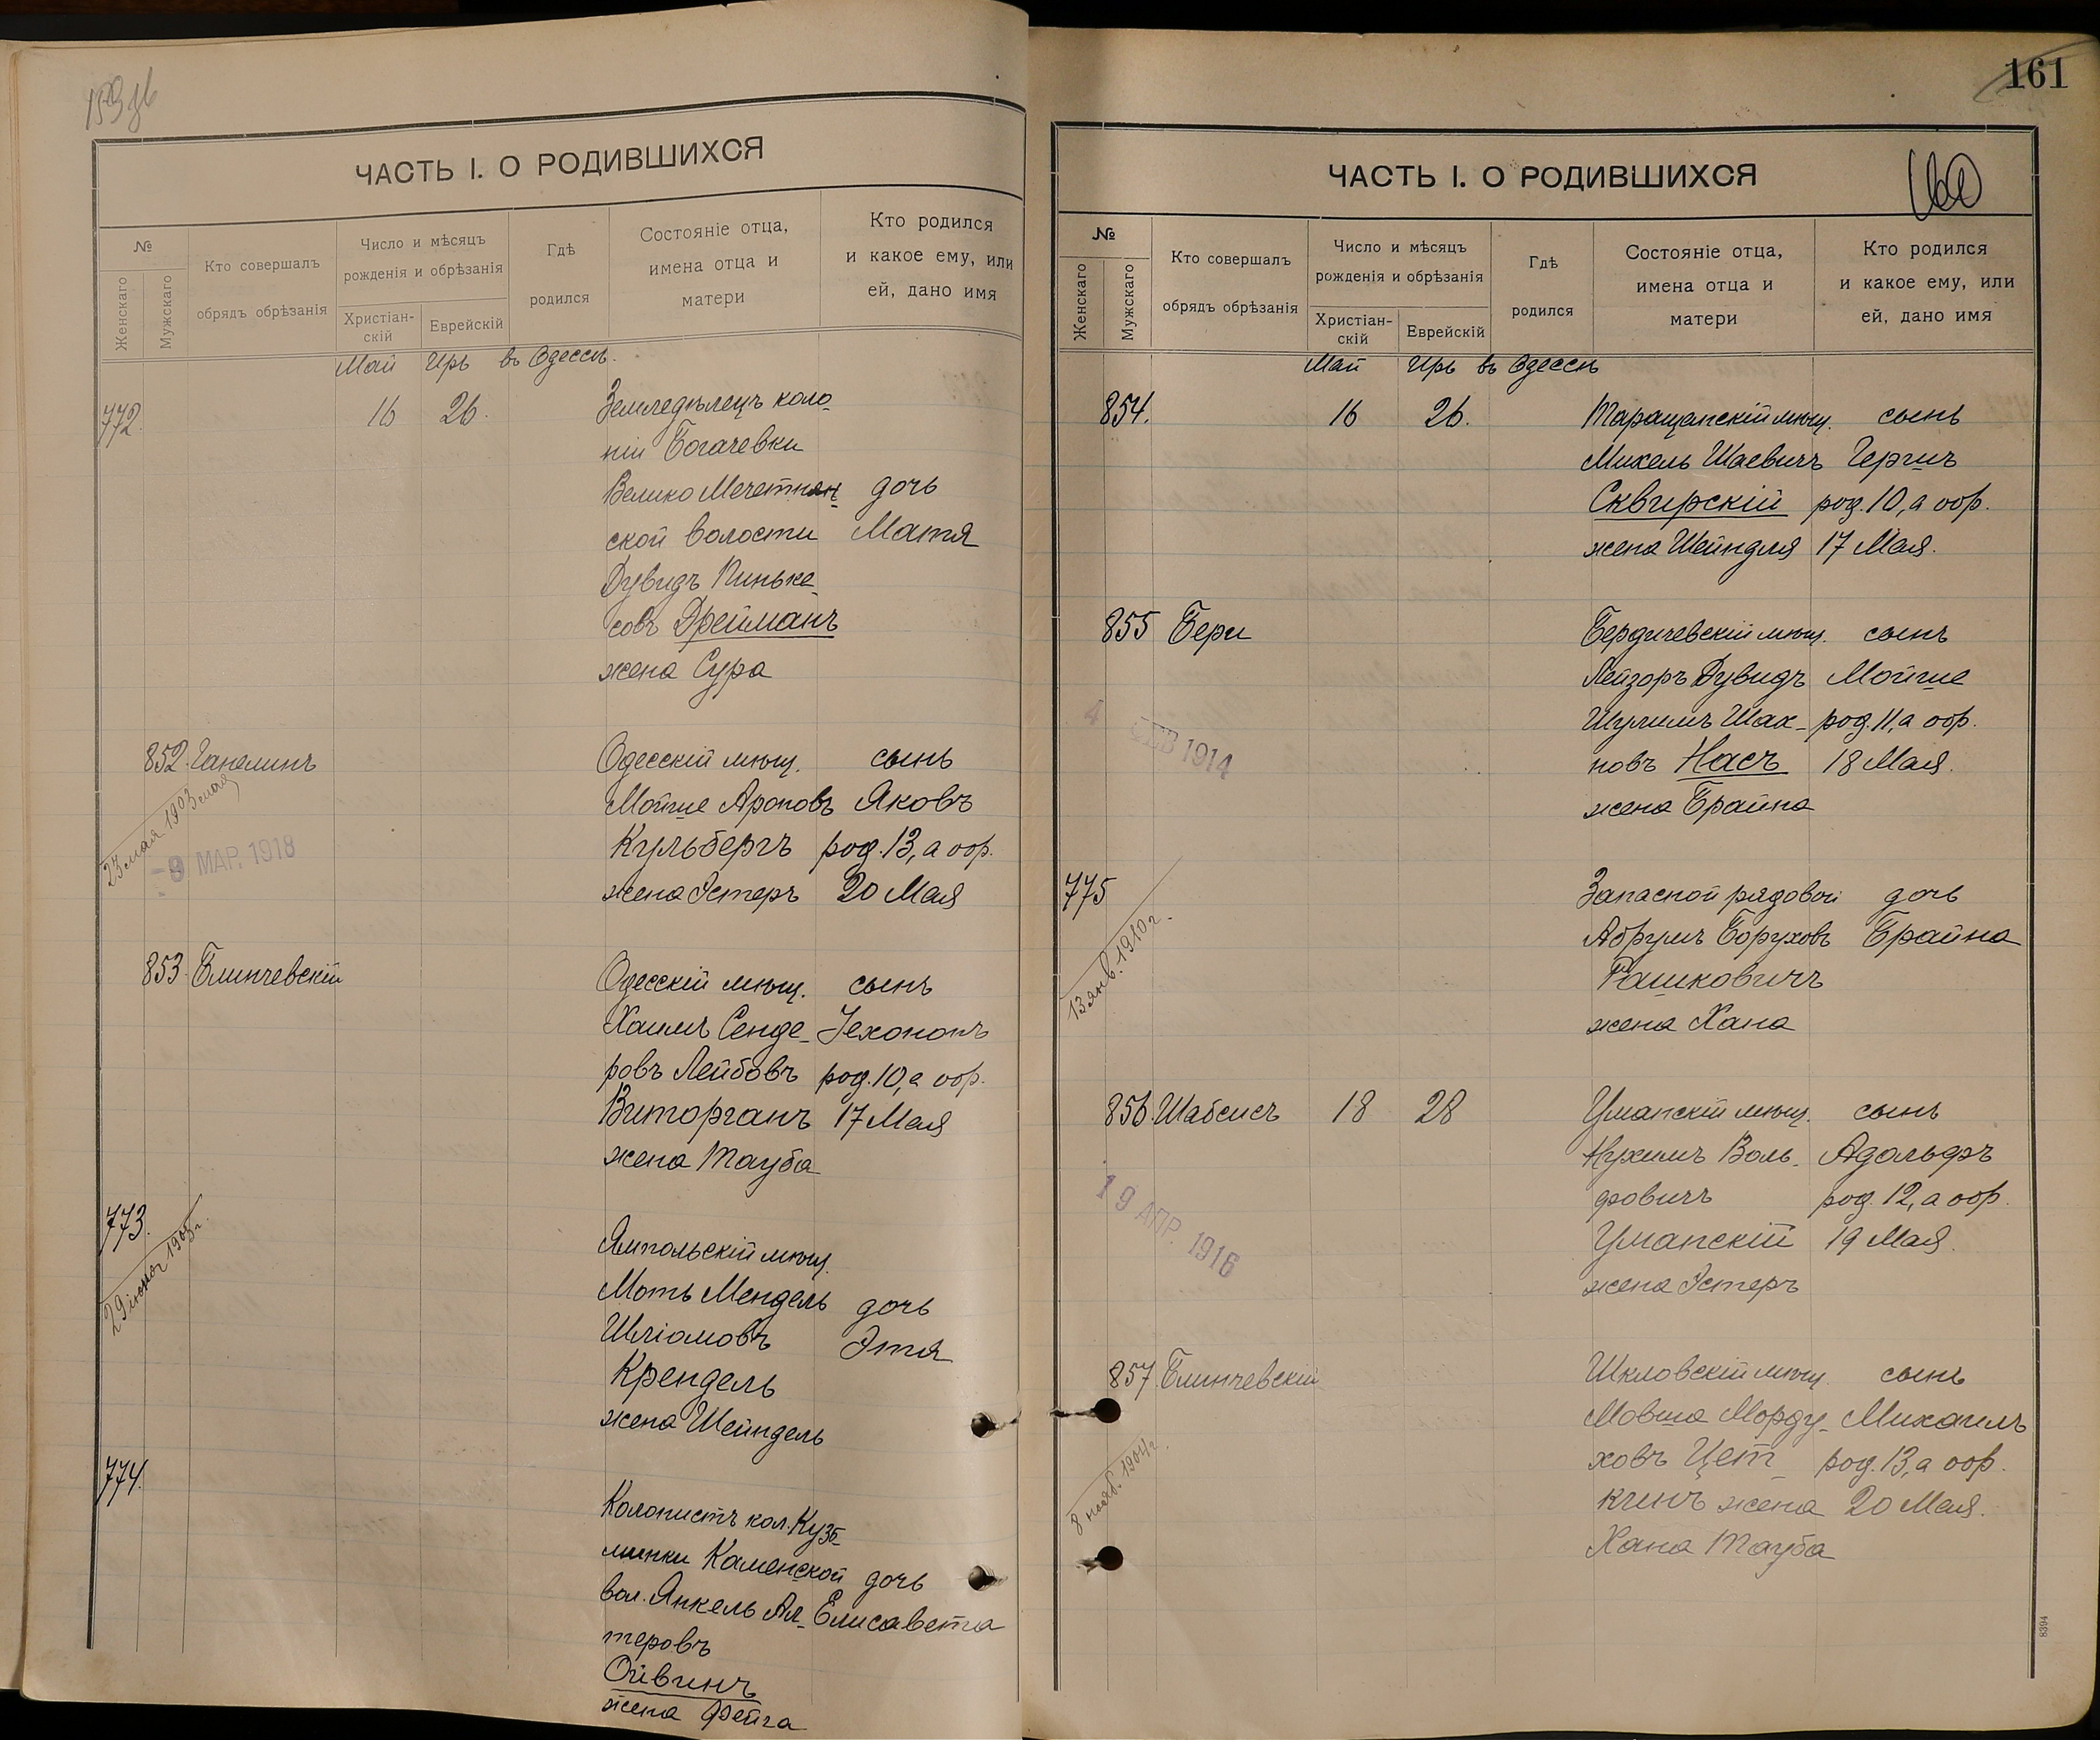 159 об
ЧАСТЬ I. О РОДИВШИХСЯ
№
Женскаго
Мужскаго
Кто совершалъ
обрядъ обрѣзанія
Число и мѣсяцъ
рожденія и обрѣзанія
Христіан-
скій
Еврейскій
Гдѣ
родился
Состояніе отца,
имена отца и
матери
Кто родился
и какое ему, или
ей, дано имя
Май Иръ въ Одессѣ.
772. 16 26. Земледѣлецъ коло-
ніи Богачевки
Велико Мечетнян- дочь
ской волости Матя
Дувидъ Пиньке-
совъ Фрейманъ
жена Сура
852. Ганелинъ Одесскій мѣщ. сынъ
23 мая 1903
Мойше Ароновъ Яковъ
- 9 МАР. 1918
Кульбергъ род. 13, а обр.
жена Эстеръ 20 Мая
853. Блинчевскій Одесскій мѣщ. сынъ
Хаимъ Сенде- Іехононъ
ровъ Лейбовъ род. 10, а обр.
Виторганъ 17 Мая
жена Тауба
773.
Ямпольскій мѣщ.
Моть Мендель дочь
Шліомовъ Этя
Крендель
жена Шейндель
774.
Колонистъ кол. Кузь-
минки Каменской дочь
вол. Янкель Ал- Елисавета
теровъ
Ойвинъ
жена Фейга
161
160
ЧАСТЬ I. О РОДИВШИХСЯ
№
Женскаго
Мужскаго
Кто совершалъ
обрядъ обрѣзанія
Число и мѣсяцъ
рожденія и обрѣзанія
Христіан-
скій
Еврейскій
Гдѣ
родился
Состояніе отца,
имена отца и
матери
Кто родился
и какое ему, или
ей, дано имя
Май Иръ въ Одессѣ
854. 16 26. Таращанскій мѣщ. сынъ
Михель Шаевичъ Гершъ
Сквирскій род. 10, а обр.
жена Шейндля 17 Мая.
855 Бери Бердичевскій мѣщ. сынъ
Лейзоръ Дувидъ Мойше
Шулимъ Шах- род. 11, а обр.
4 ФЕВ 1914
новъ Насъ 18 Мая.
жена Брайна
775 Запасной рядовой дочь
13 янв. 1910 г.
Абрумъ Боруховъ Брайна
Рашковичъ
жена Хана
856. Шабсисъ 18 28 Уманскій мѣщ. сынъ
Нухимъ Воль- Адольфъ
фовичъ род. 12, а обр.
19 АПР. 1916
Уманскій 19 Мая.
жена Эстеръ
857. Блинчевскій Шкловскій мѣщ. сынъ
Мовша Морду- Михаилъ
8 нояб. 1904 г.
ховъ Цет- род. 13, а обр.
кинъ жена 20 Мая.
Хана Тауба
8394